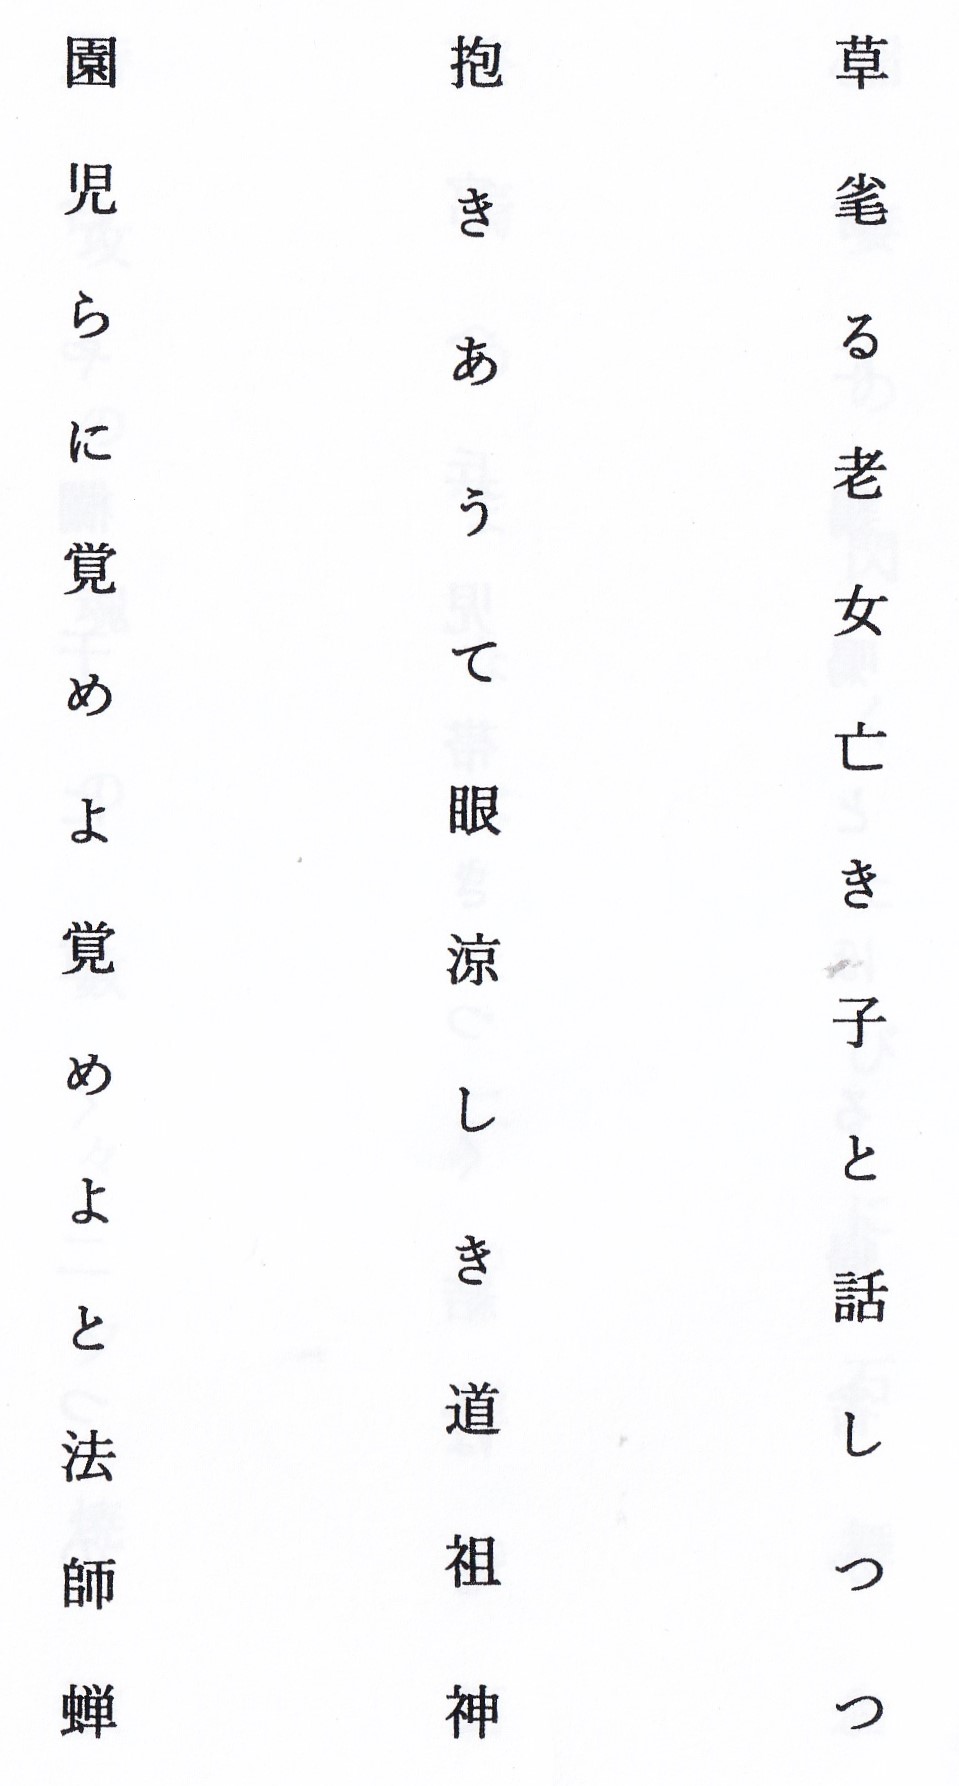 草毟る老女亡き子と話しつつ
抱きあうて眼涼しき道祖神
園児らに覚めよ覚めよと法師蝉